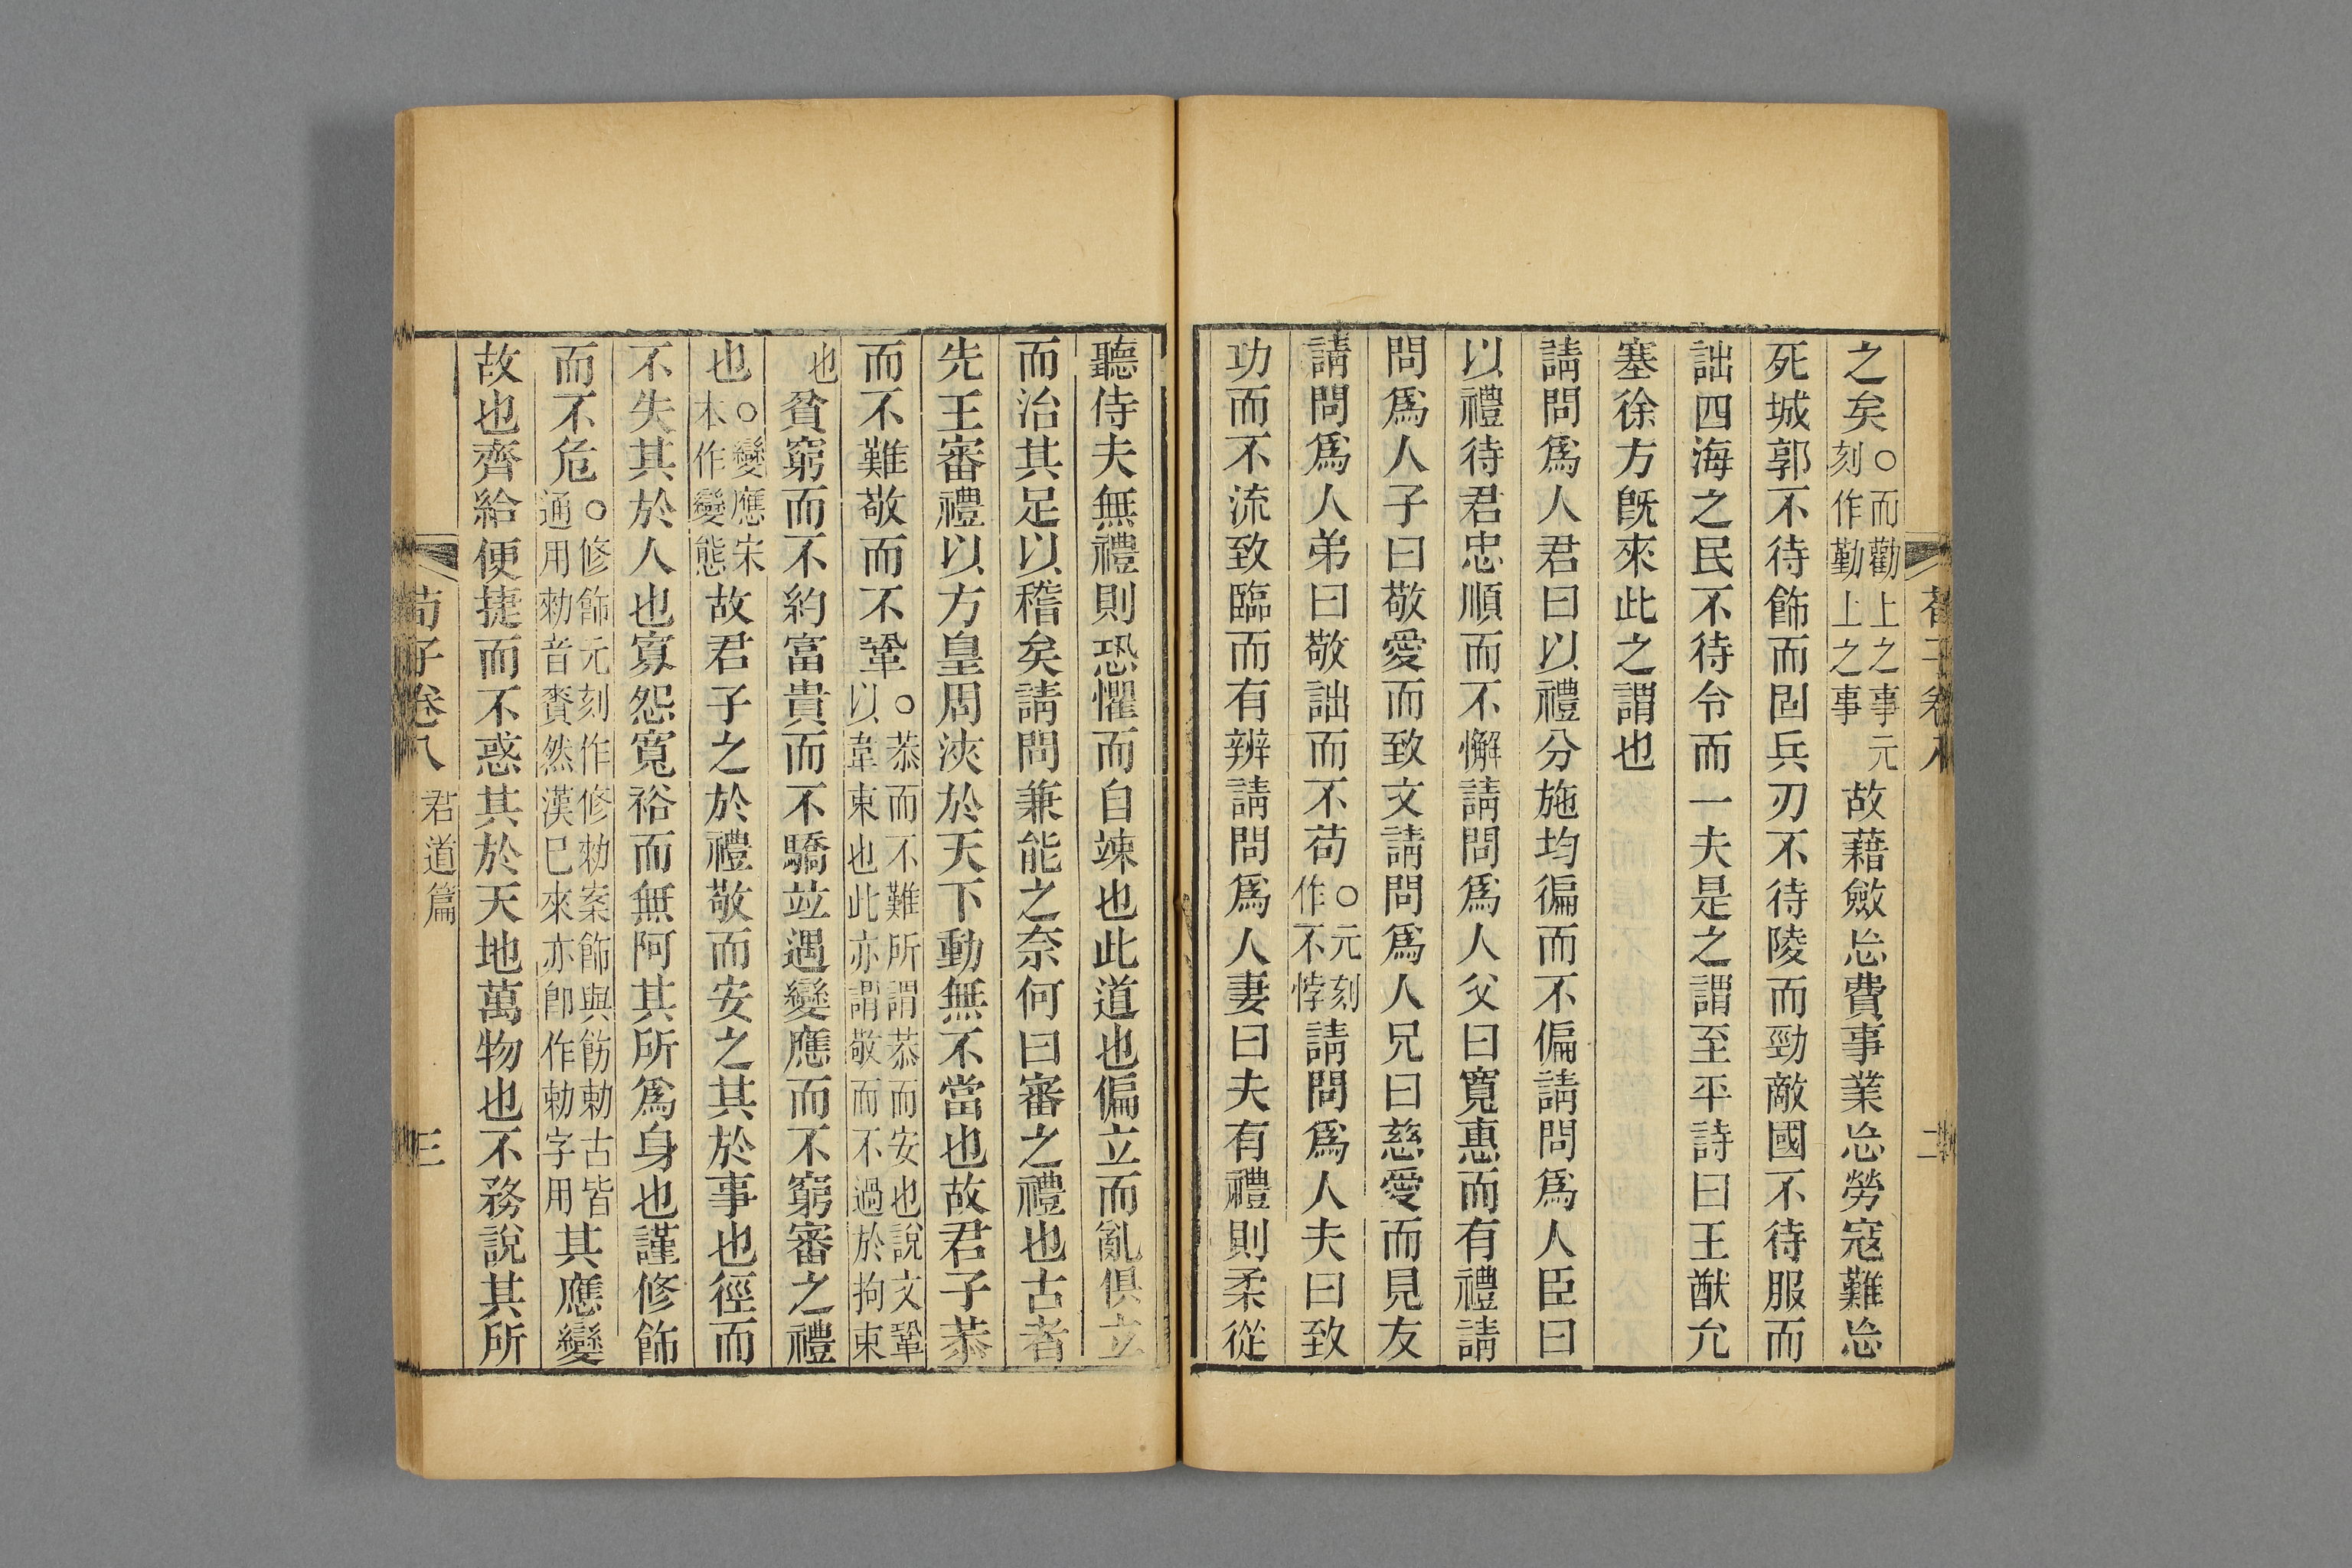 荀子卷八
二
之矣○而勸上之事元刻作勤上之事故藉斂㤀費事業㤀勞寇難㤀
死城郭不待飾而固兵刃不待陵而勁敵國不待服而
詘四海之民不待令而一夫是之謂至平詩曰王猷允
塞徐方旣來此之謂也
請問爲人君曰以禮分施均徧而不偏請問爲人臣曰
以禮待君忠順而不懈請問爲人父曰寬惠而有禮請
問爲人子曰敬愛而致文請問爲人兄曰慈愛而見友
請問爲人弟曰敬詘而不苟○元刻作不悖請問爲人夫曰致
功而不流致臨而有辨請問爲人妻曰夫有禮則柔從
聽侍夫無禮則恐懼而自竦也此道也偏立而亂俱立
而治其足以稽矣請問兼能之奈何曰審之禮也古者
先王審禮以方皇周浹於天下動無不當也故君子恭
而不難敬而不鞏○恭而不難所謂恭而安也說文鞏以韋束也此亦謂敬而不過於拘束
也貧窮而不約富貴而不驕竝遇變應而不窮審之禮
也○變應宋本作變態故君子之於禮敬而安之其於事也徑而
不失其於人也寡怨寬裕而無阿其所爲身也謹修飾
而不危○修飾元刻作修勑案飾與飭勅古皆通用勑音賚然漢已來亦卽作勅字用其應變
故也齊給便捷而不惑其於天地萬物也不務說其所
荀子卷八
君道篇
三